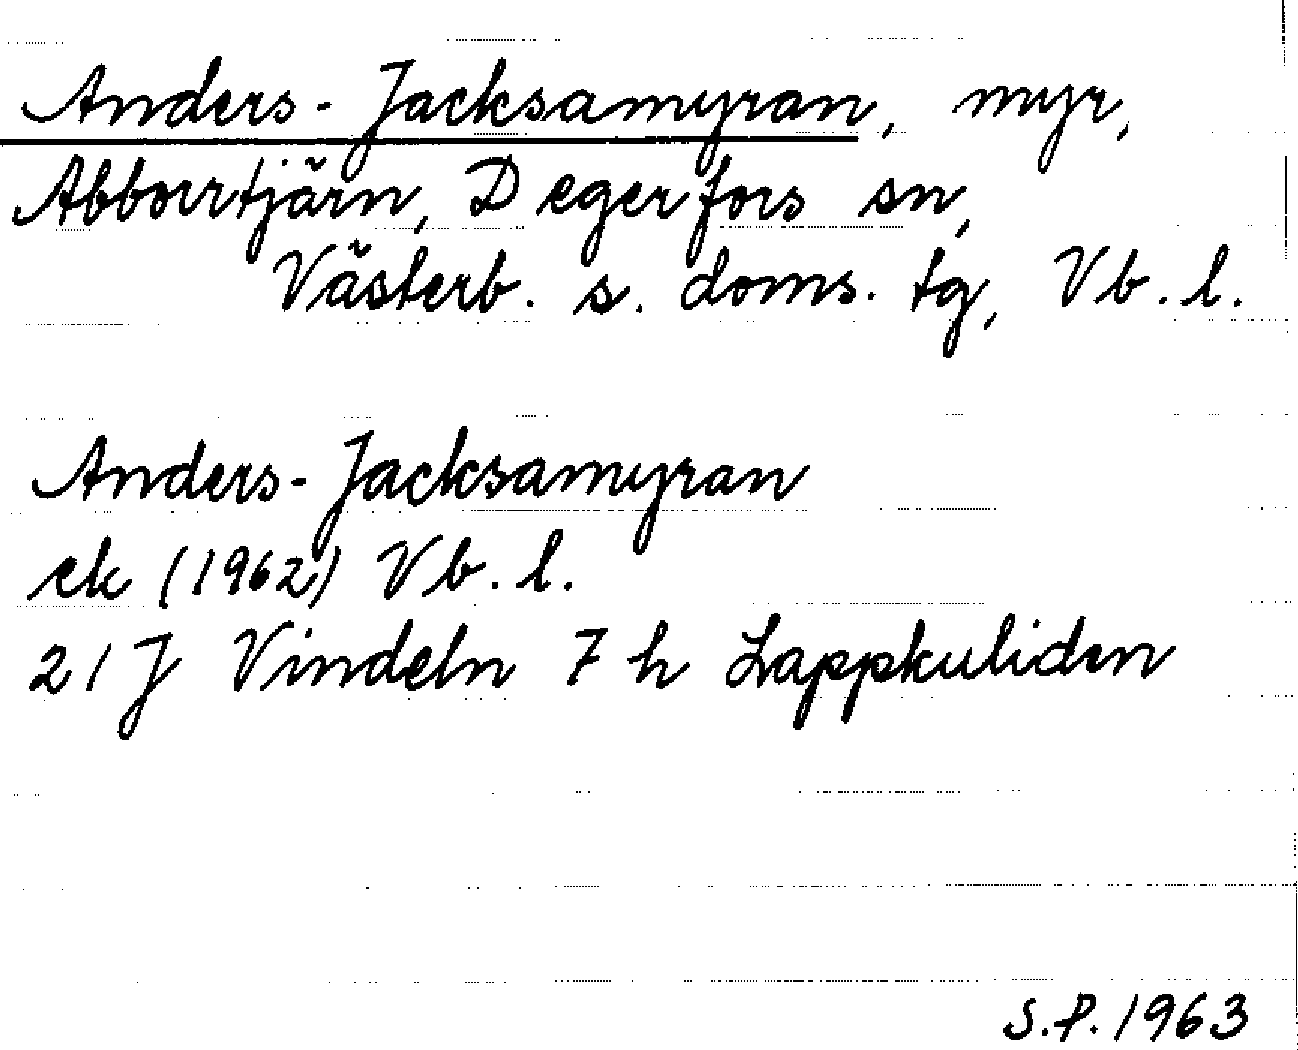 Anders-Jacksamyran, myr,
Abborrtjärn, Degerfors sn,
Västerb. s. doms. tg, Vb. l.
Anders-Jacksamyran
ek (1962) Vb. l.
21J Vindeln 7 h Lappkuliden
S.P. 1963